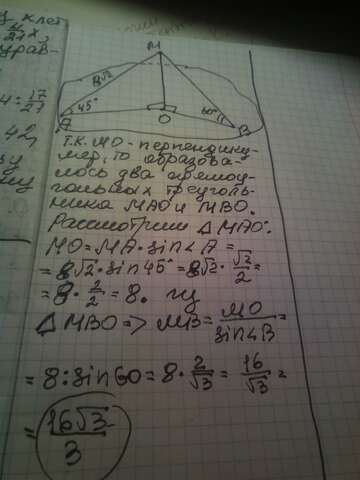 у клет
4/21 x,
урав-
4 = 17/21
42,
M
8√2
45°
60°
A
O
B
Т.К. МО - перпендику-
ляр, то образова-
лось два прямоу-
гольных треуголь-
ника МАО и МВО.
Рассмотрим △МАО:
МО = МА · sin∠A =
= 8√2 · sin45° = 8√2 · √2/2 =
= 8 · 2/2 = 8.
△МВО => МВ = МО/sin∠B =
= 8 : sin60 = 8 · 2/√3 = 16/√3 =
= 16√3/3